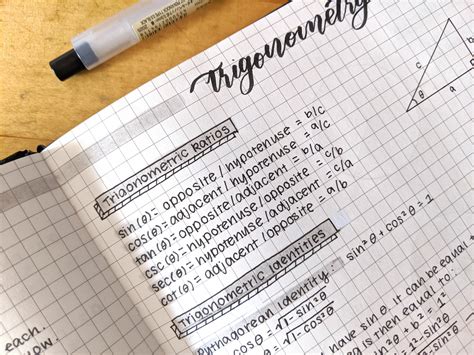 Trigonometry
Trigonometric Ratios
sin(θ)= opposite / hypotenuse = b/c
cos(θ)= adjacent / hypotenuse = a/c
tan(θ)= opposite/adjacent = b/a
csc(θ)= hypotenuse/opposite = c/b
sec(θ)= hypotenuse/adjacent = c/a
cot(θ)= adjacent/opposite = a/b
Trigonometric Identities
Pythagorean identity: sin²θ + cos²θ = 1
cosθ = √1-sin²θ
√1-cos²θ
have sin θ. It can be equa
is then equal to:
each.
ow.
c
θ
a